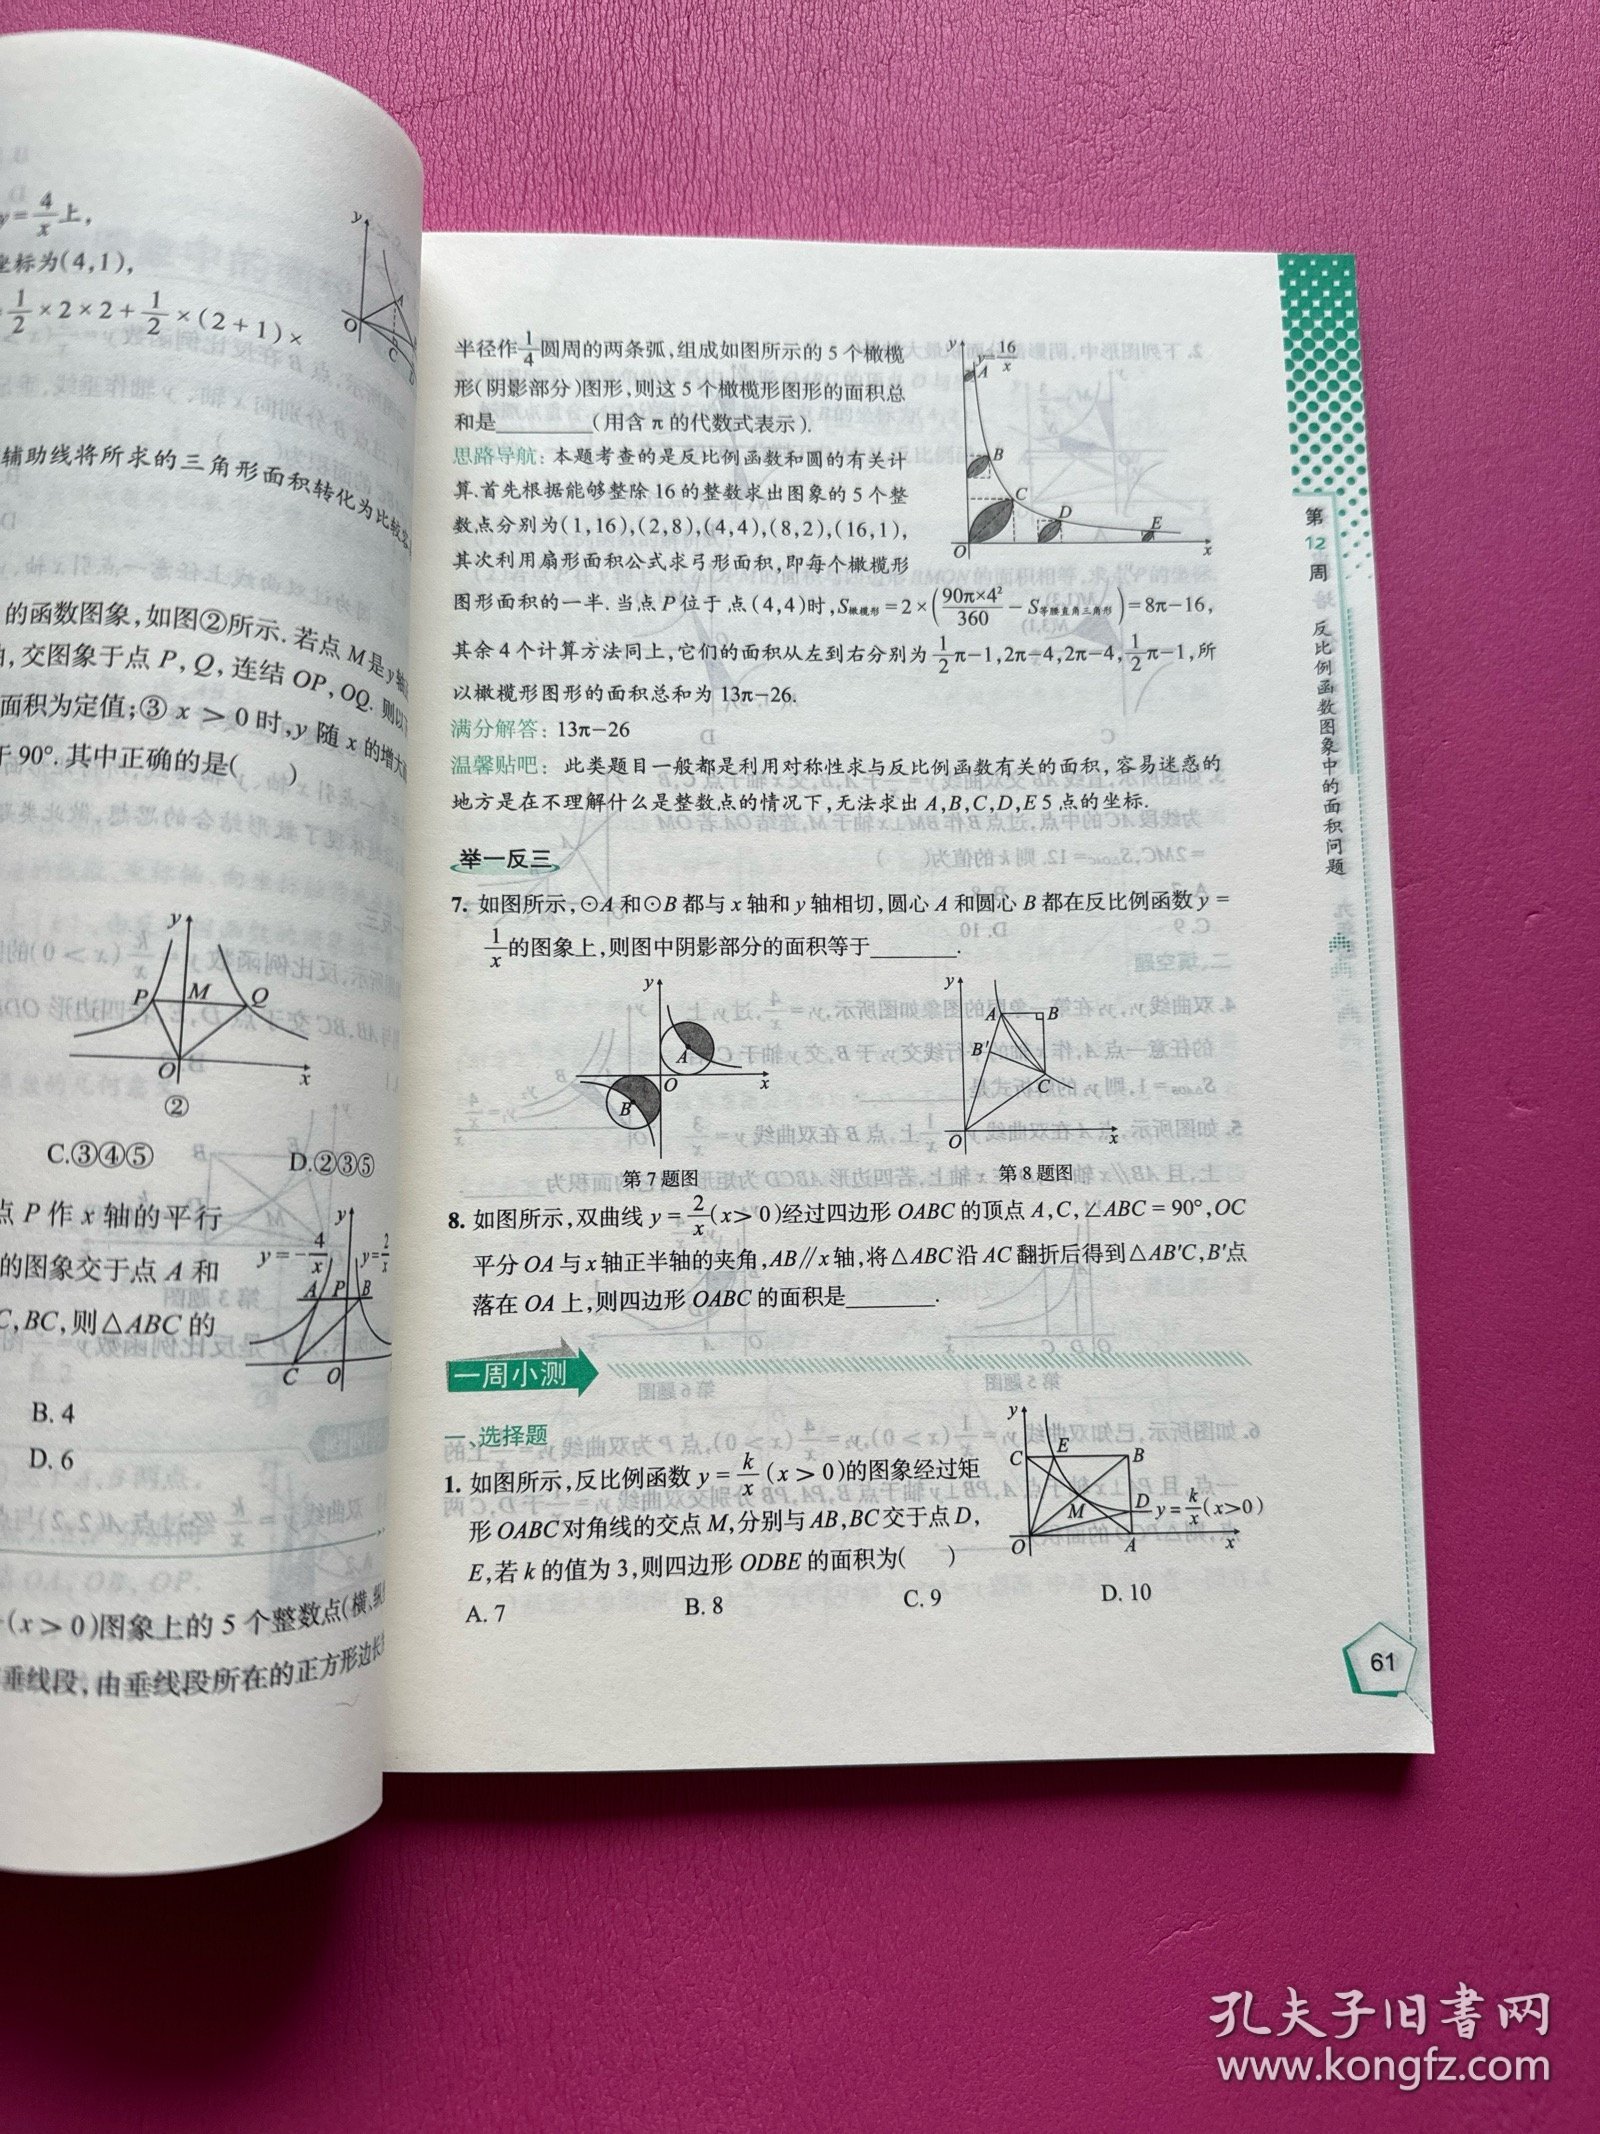 y=4/x上,
坐标为(4,1),
1/2×2×2+1/2×(2+1)×
y
A
O
C
D
辅助线将所求的三角形面积转化为比较
的函数图象,如图②所示.若点M是y轴
,交图象于点P,Q,连结OP,OQ.则以
面积为定值;③x>0时,y随x的增大
于90°.其中正确的是( )
y
P M Q
O x
②
C.③④⑤ D.②③⑤
点P作x轴的平行
的图象交于点A和
C,BC,则△ABC的
y
y=-4/x y=2/x
A P B
C O
B. 4
D. 6
(x>0)图象上的5个整数点(横、纵
垂线段,由垂线段所在的正方形边长
半径作1/4圆周的两条弧,组成如图所示的5个橄榄
形(阴影部分)图形,则这5个橄榄形图形的面积总
和是________(用含π的代数式表示).
思路导航:本题考查的是反比例函数和圆的有关计
算.首先根据能够整除16的整数求出图象的5个整
数点分别为(1,16),(2,8),(4,4),(8,2),(16,1),
其次利用扇形面积公式求弓形面积,即每个橄榄形
y
y=16/x
A
B
C
D
E
O x
图形面积的一半.当点P位于点(4,4)时,S橄榄形=2×(90π×4²/360-S等腰直角三角形)=8π-16,
其余4个计算方法同上,它们的面积从左到右分别为1/2π-1,2π-4,2π-4,1/2π-1,所
以橄榄形图形的面积总和为13π-26.
满分解答:13π-26
温馨贴吧:此类题目一般都是利用对称性求与反比例函数有关的面积,容易迷惑的
地方是在不理解什么是整数点的情况下,无法求出A,B,C,D,E5点的坐标.
举一反三
7. 如图所示,⊙A和⊙B都与x轴和y轴相切,圆心A和圆心B都在反比例函数y=
1/x的图象上,则图中阴影部分的面积等于________.
y
A
O x
B
第7题图
y
A B
B′
C
O x
第8题图
8. 如图所示,双曲线y=2/x(x>0)经过四边形OABC的顶点A,C,∠ABC=90°,OC
平分OA与x轴正半轴的夹角,AB∥x轴,将△ABC沿AC翻折后得到△AB′C,B′点
落在OA上,则四边形OABC的面积是________.
一周小测
一、选择题
1. 如图所示,反比例函数y=k/x(x>0)的图象经过矩
形OABC对角线的交点M,分别与AB,BC交于点D,
E,若k的值为3,则四边形ODBE的面积为( )
y
C E B
M D y=k/x(x>0)
O A x
A. 7 B. 8 C. 9 D. 10
第12周 反比例函数图象中的面积问题
61
孔夫子旧书网
www.kongfz.com